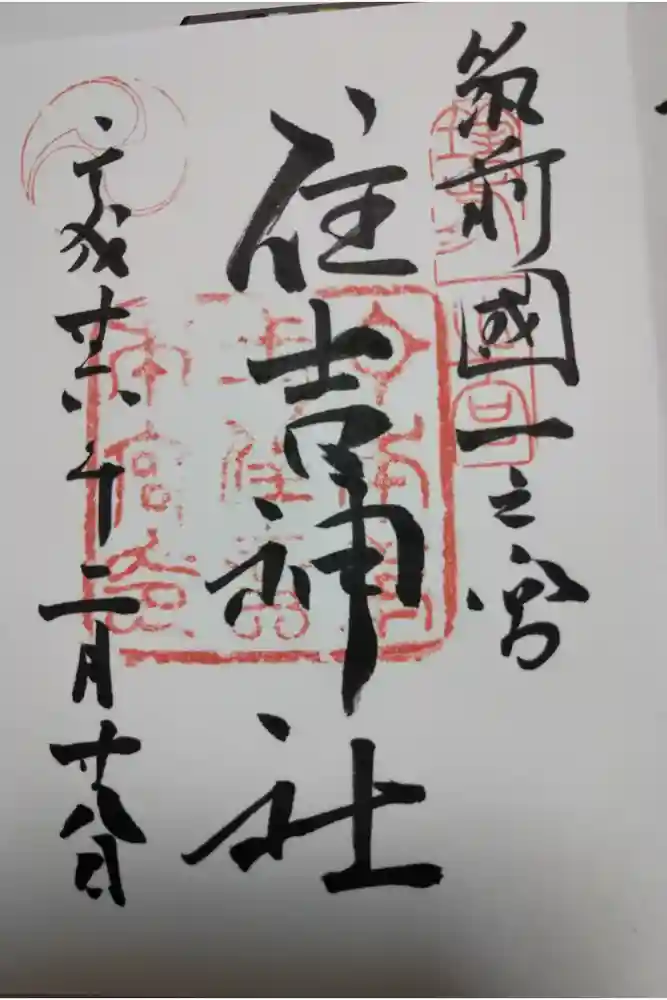 筑前國一之宮
住吉神社
平成廿六年二月廿八日